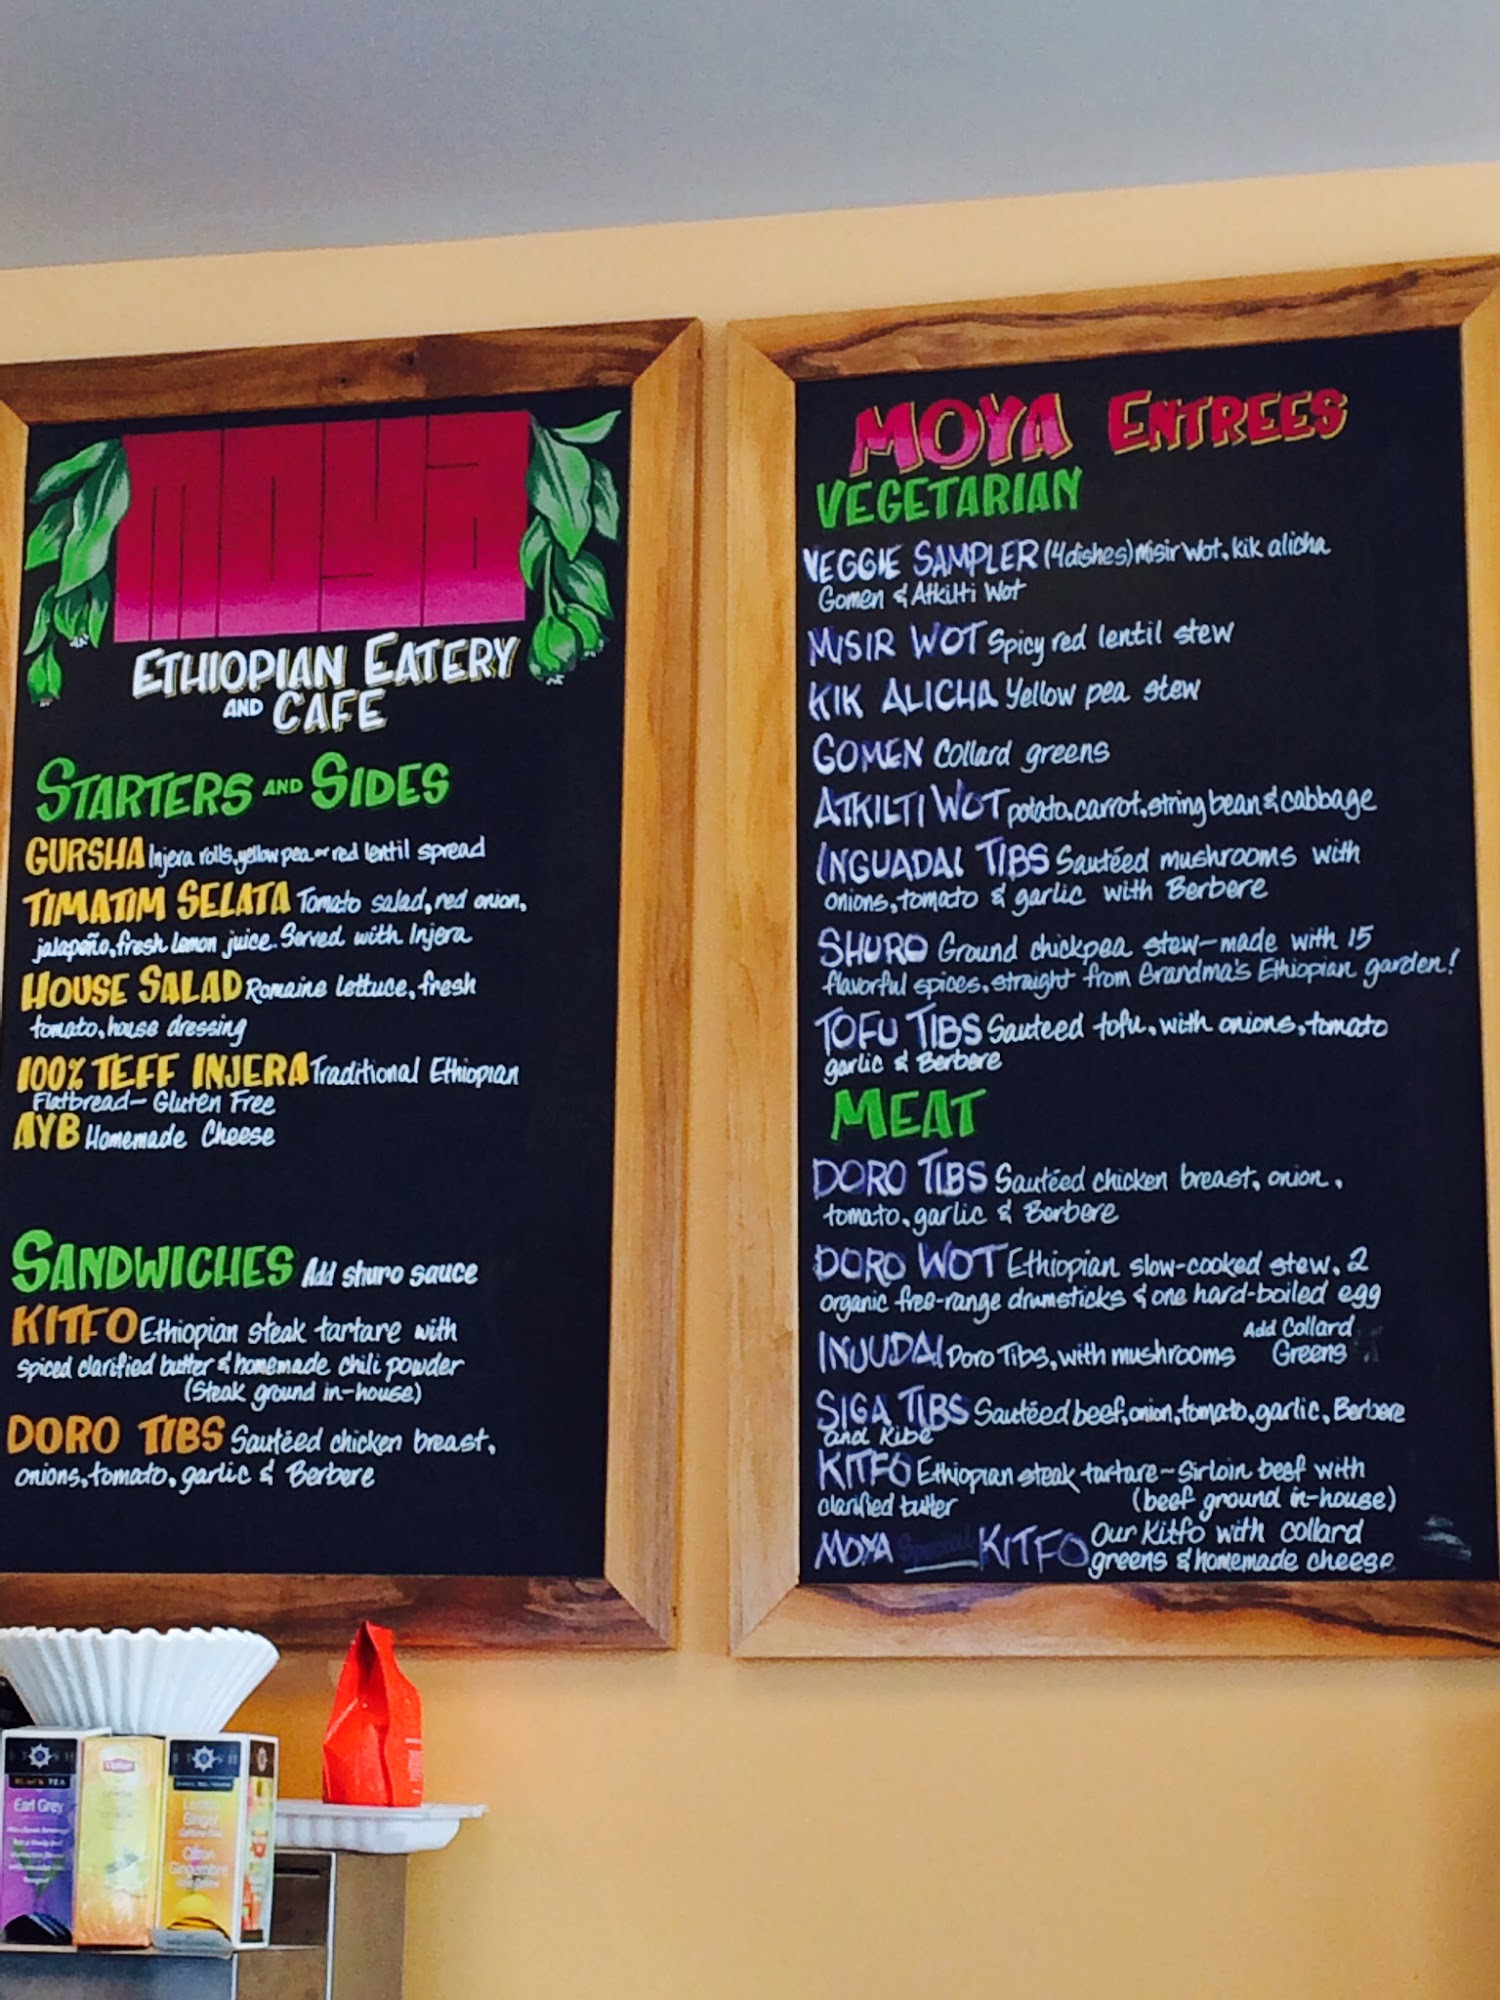 moya
ETHIOPIAN EATERY
AND CAFE
STARTERS AND SIDES
GURSHA Injera rolls, yellow pea or red lentil spread
TIMATIM SELATA Tomato salad, red onion,
jalapeño, fresh lemon juice. Served with Injera
HOUSE SALAD Romaine lettuce, fresh
tomato, house dressing
100% TEFF INJERA Traditional Ethiopian
Flatbread - Gluten Free
AYB Homemade Cheese
SANDWICHES Add shuro sauce
KITFO Ethiopian steak tartare with
spiced clarified butter & homemade chili powder
(Steak ground in-house)
DORO TIBS Sautéed chicken breast,
onions, tomato, garlic & Berbere
MOYA ENTREES
VEGETARIAN
VEGGIE SAMPLER (4 dishes) Misir Wot, kik alicha
Gomen & Atkilti Wot
MISIR WOT Spicy red lentil stew
KIK ALICHA Yellow pea stew
GOMEN Collard greens
ATKILTI WOT potato, carrot, string bean & cabbage
INGUADAI TIBS Sautéed mushrooms with
onions, tomato & garlic with Berbere
SHURO Ground chickpea stew - made with 15
flavorful spices, straight from Grandma's Ethiopian garden!
TOFU TIBS Sauteed tofu, with onions, tomato
garlic & Berbere
MEAT
DORO TIBS Sautéed chicken breast, onion,
tomato, garlic & Berbere
DORO WOT Ethiopian slow-cooked stew, 2
organic free-range drumsticks & one hard-boiled egg
INJUDAI Doro Tibs, with mushrooms Add Collard
Greens
SIGA TIBS Sautéed beef, onion, tomato, garlic, Berbere
and Kibe
KITFO Ethiopian steak tartare ~ Sirloin beef with
clarified butter (beef ground in-house)
MOYA Special KITFO Our Kitfo with collard
greens & homemade cheese
STASH
BLACK TEA
Earl Grey
Lipton
LEMON
STASH
Lemon
Ginger
Citron
Gingembre